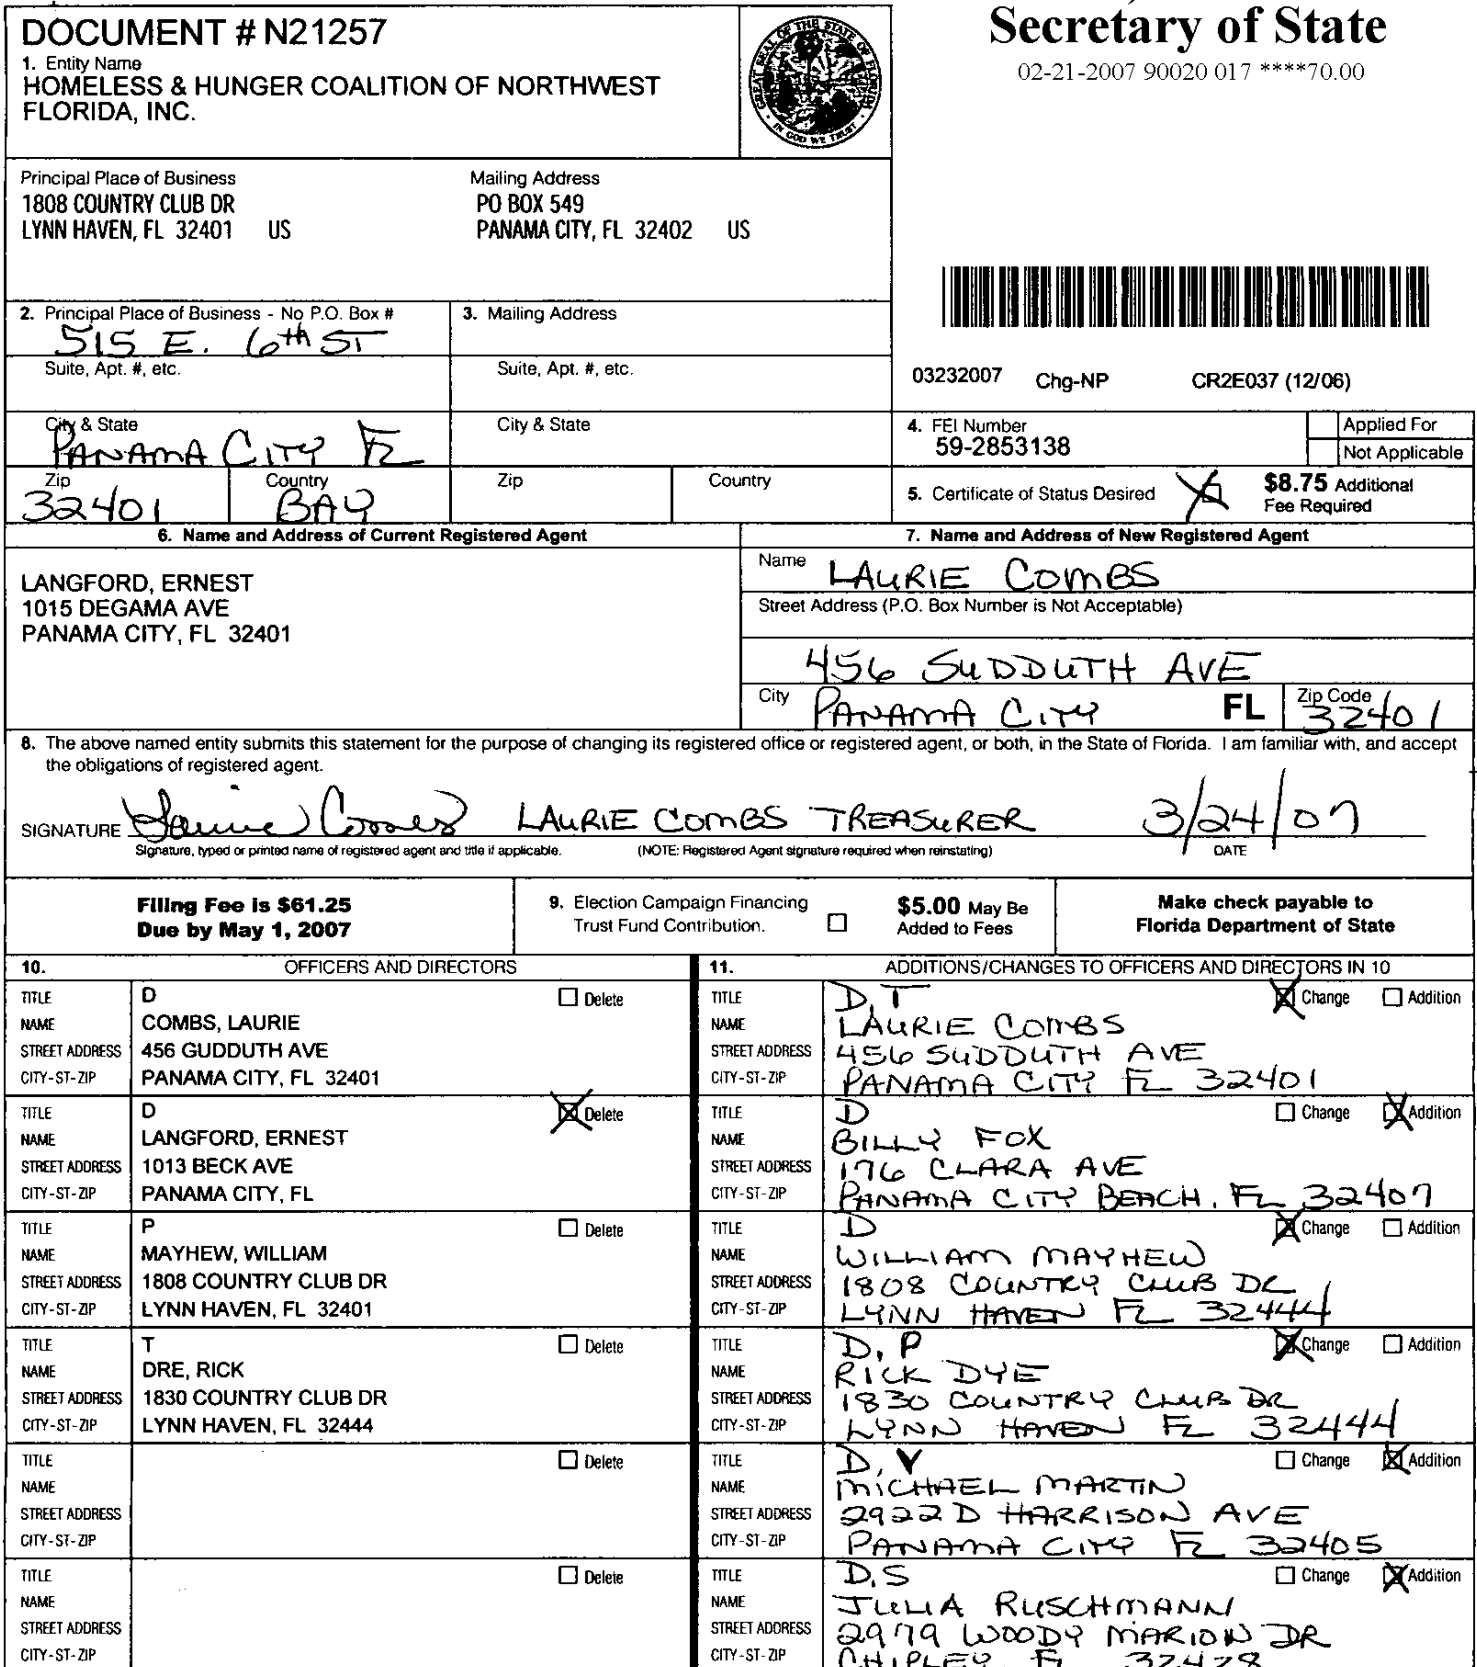 DOCUMENT # N21257
1. Entity Name
HOMELESS & HUNGER COALITION OF NORTHWEST
FLORIDA, INC.
GREAT SEAL OF THE STATE OF FLORIDA
IN GOD WE TRUST
Secretary of State
02-21-2007 90020 017 ****70.00
Principal Place of Business
1808 COUNTRY CLUB DR
LYNN HAVEN, FL 32401 US
Mailing Address
PO BOX 549
PANAMA CITY, FL 32402 US
2. Principal Place of Business - No P.O. Box #
515 E. 6th ST
3. Mailing Address
Suite, Apt. #, etc.
Suite, Apt. #, etc.
03232007 Chg-NP CR2E037 (12/06)
City & State
PANAMA CITY FL
City & State
4. FEI Number
59-2853138
Applied For
Not Applicable
Zip
32401
Country
BAY
Zip
Country
5. Certificate of Status Desired
$8.75 Additional
Fee Required
6. Name and Address of Current Registered Agent
LANGFORD, ERNEST
1015 DEGAMA AVE
PANAMA CITY, FL 32401
7. Name and Address of New Registered Agent
Name LAURIE COMBS
Street Address (P.O. Box Number is Not Acceptable)
456 SUDDUTH AVE
City PANAMA CITY FL Zip Code 32401
8. The above named entity submits this statement for the purpose of changing its registered office or registered agent, or both, in the State of Florida. I am familiar with, and accept
the obligations of registered agent.
SIGNATURE Laurie Combs LAURIE COMBS TREASURER 3/24/07
Signature, typed or printed name of registered agent and title if applicable. (NOTE: Registered Agent signature required when reinstating) DATE
Filing Fee is $61.25
Due by May 1, 2007
9. Election Campaign Financing
Trust Fund Contribution.
$5.00 May Be
Added to Fees
Make check payable to
Florida Department of State
10. OFFICERS AND DIRECTORS
TITLE D Delete
NAME COMBS, LAURIE
STREET ADDRESS 456 GUDDUTH AVE
CITY-ST-ZIP PANAMA CITY, FL 32401
TITLE D Delete
NAME LANGFORD, ERNEST
STREET ADDRESS 1013 BECK AVE
CITY-ST-ZIP PANAMA CITY, FL
TITLE P Delete
NAME MAYHEW, WILLIAM
STREET ADDRESS 1808 COUNTRY CLUB DR
CITY-ST-ZIP LYNN HAVEN, FL 32401
TITLE T Delete
NAME DRE, RICK
STREET ADDRESS 1830 COUNTRY CLUB DR
CITY-ST-ZIP LYNN HAVEN, FL 32444
TITLE Delete
NAME
STREET ADDRESS
CITY-ST-ZIP
TITLE Delete
NAME
STREET ADDRESS
CITY-ST-ZIP
11. ADDITIONS/CHANGES TO OFFICERS AND DIRECTORS IN 10
TITLE D, T Change Addition
NAME LAURIE COMBS
STREET ADDRESS 456 SUDDUTH AVE
CITY-ST-ZIP PANAMA CITY FL 32401
TITLE D Change Addition
NAME BILLY FOX
STREET ADDRESS 176 CLARA AVE
CITY-ST-ZIP PANAMA CITY BEACH, FL 32407
TITLE D Change Addition
NAME WILLIAM MAYHEW
STREET ADDRESS 1808 COUNTRY CLUB DR
CITY-ST-ZIP LYNN HAVEN FL 32444
TITLE D, P Change Addition
NAME RICK DYE
STREET ADDRESS 1830 COUNTRY CLUB DR
CITY-ST-ZIP LYNN HAVEN FL 32444
TITLE D, V Change Addition
NAME MICHAEL MARTIN
STREET ADDRESS 2922 D HARRISON AVE
CITY-ST-ZIP PANAMA CITY FL 32405
TITLE D, S Change Addition
NAME JULIA RUSCHMANN
STREET ADDRESS 2979 WOODY MARION DR
CITY-ST-ZIP CHIPLEY, FL 32428